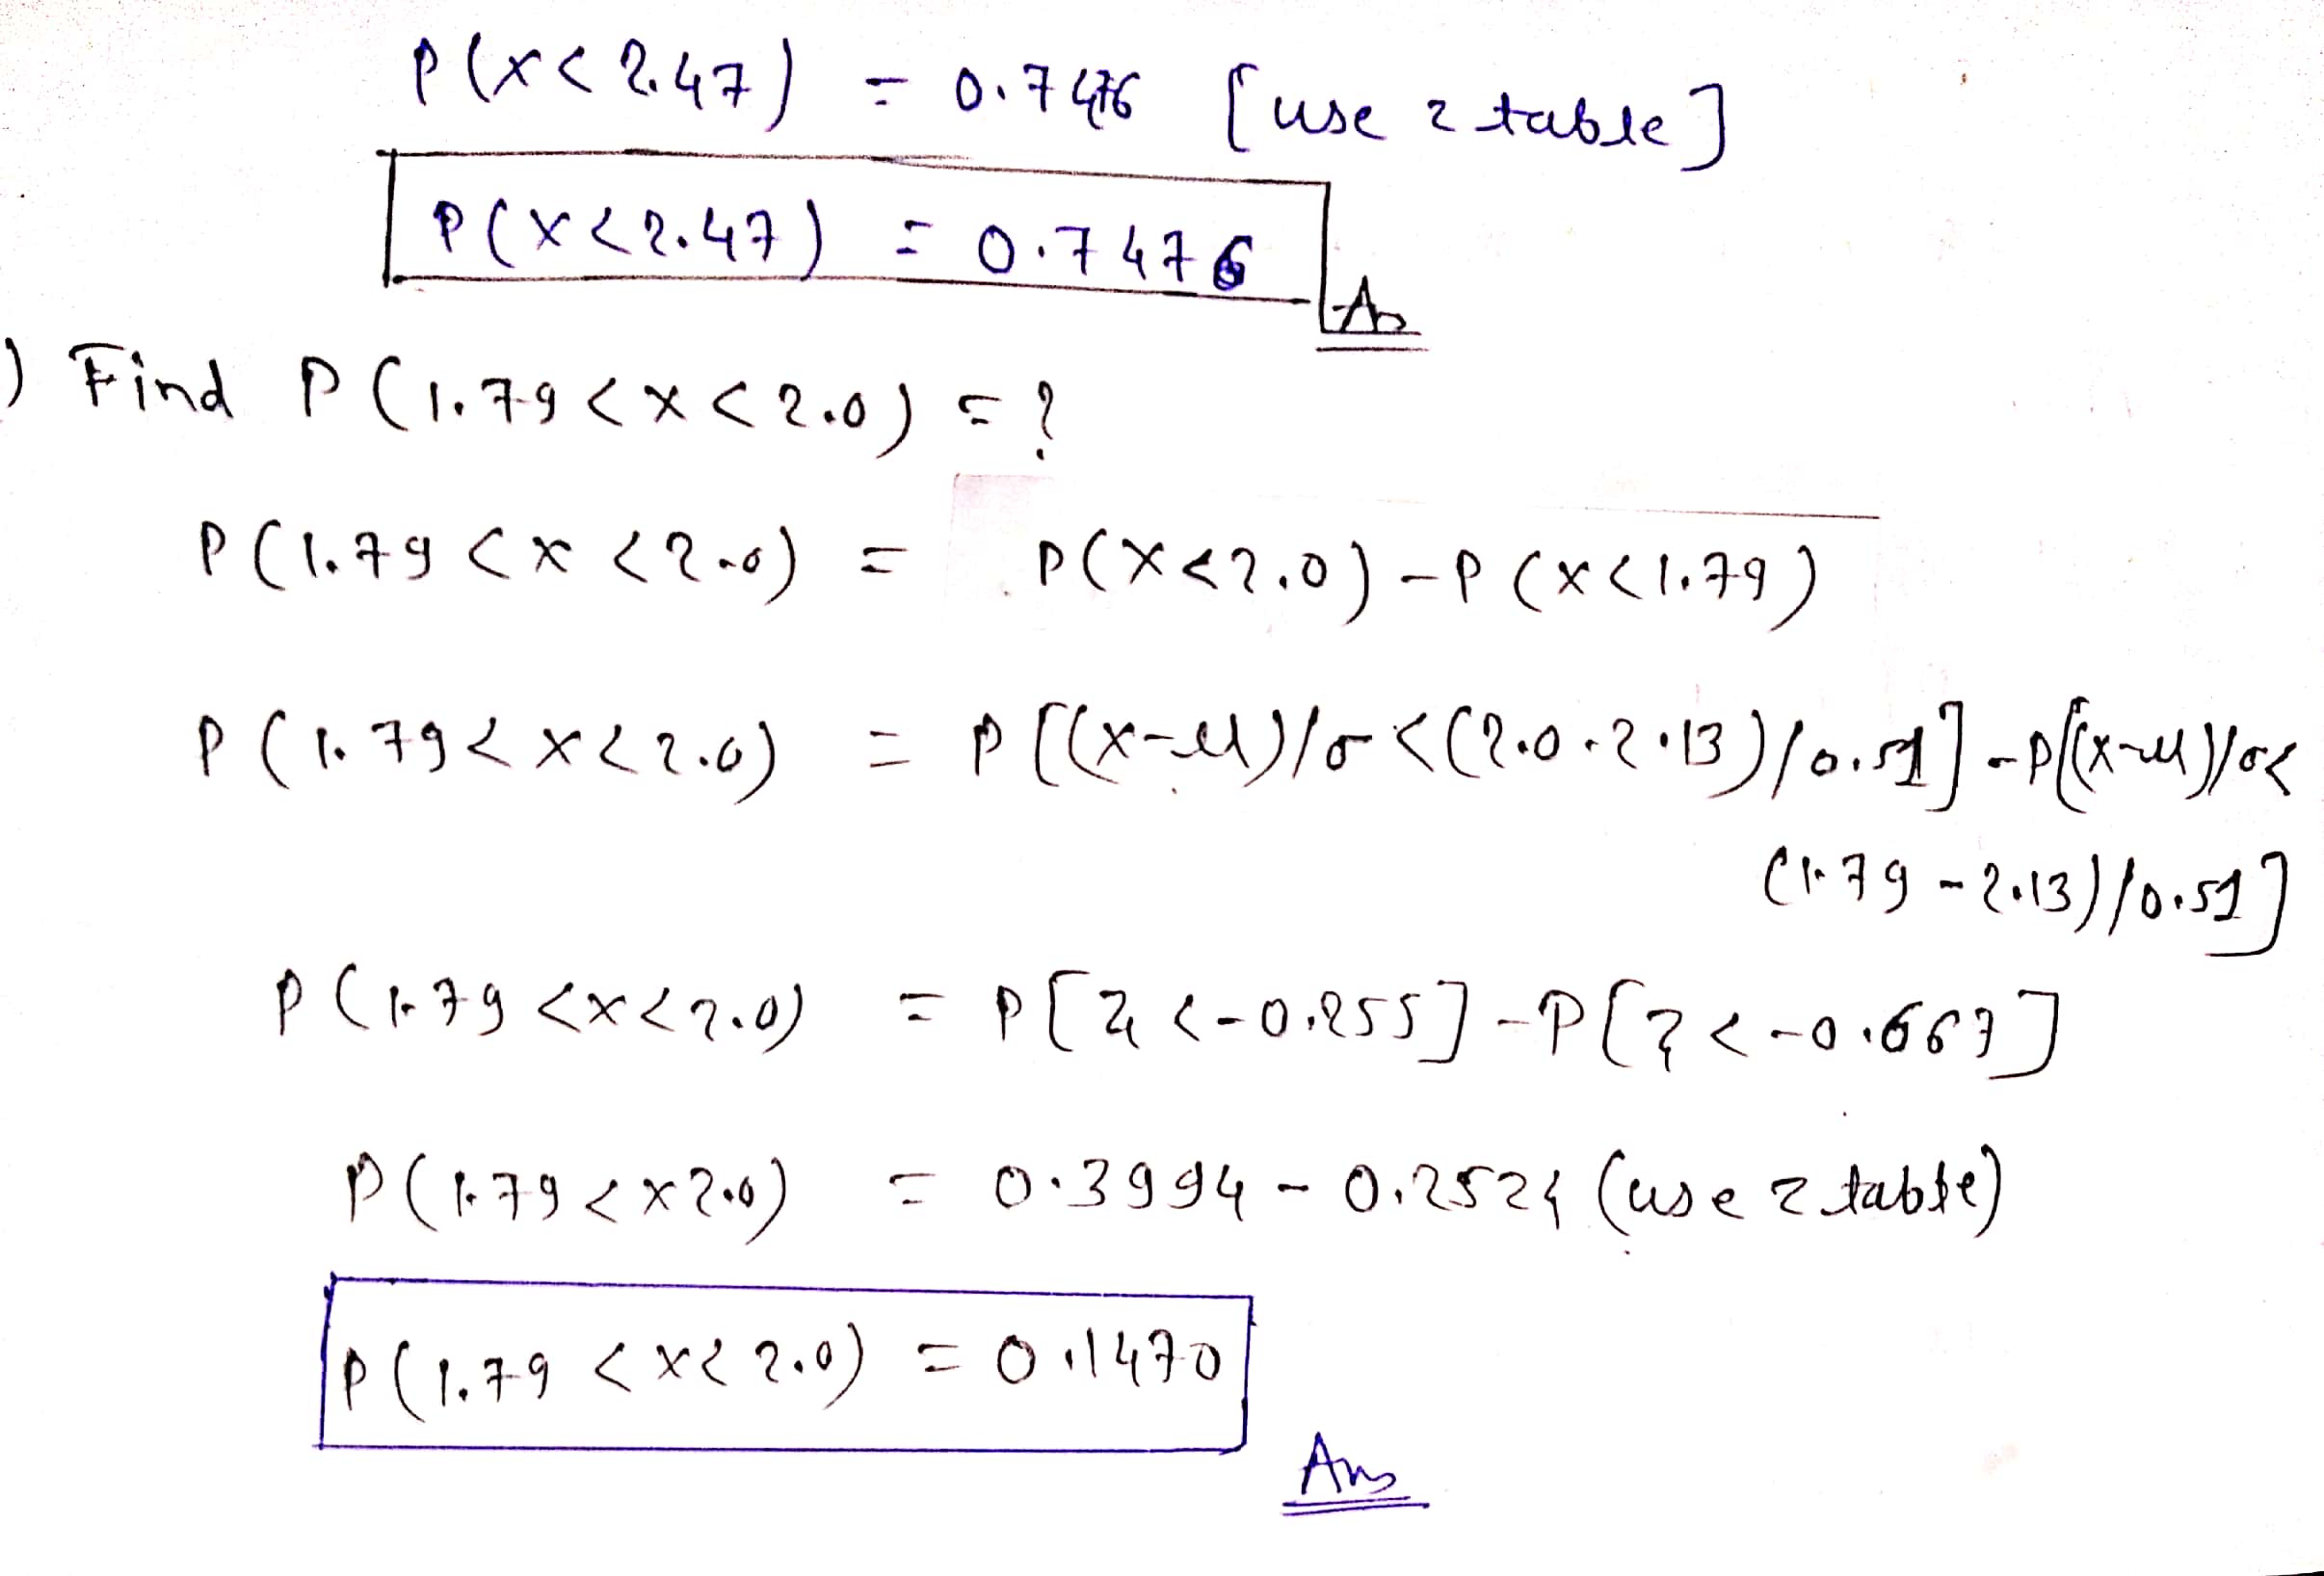 P(X<2.47) = 0.7476 [use z table]
P(X<2.47) = 0.7476
Ans
) Find P(1.79<X<2.0) = ?
P(1.79<X<2.0) = P(X<2.0)-P(X<1.79)
P(1.79<X<2.0) = P[(X-μ)/σ<(2.0-2.13)/0.51]-P[(X-μ)/σ<
(1.79-2.13)/0.51]
P(1.79<X<2.0) = P[Z<-0.255]-P[Z<-0.667]
P(1.79<X2.0) = 0.3994-0.2524 (use z table)
P(1.79<X<2.0) = 0.1470
Ans